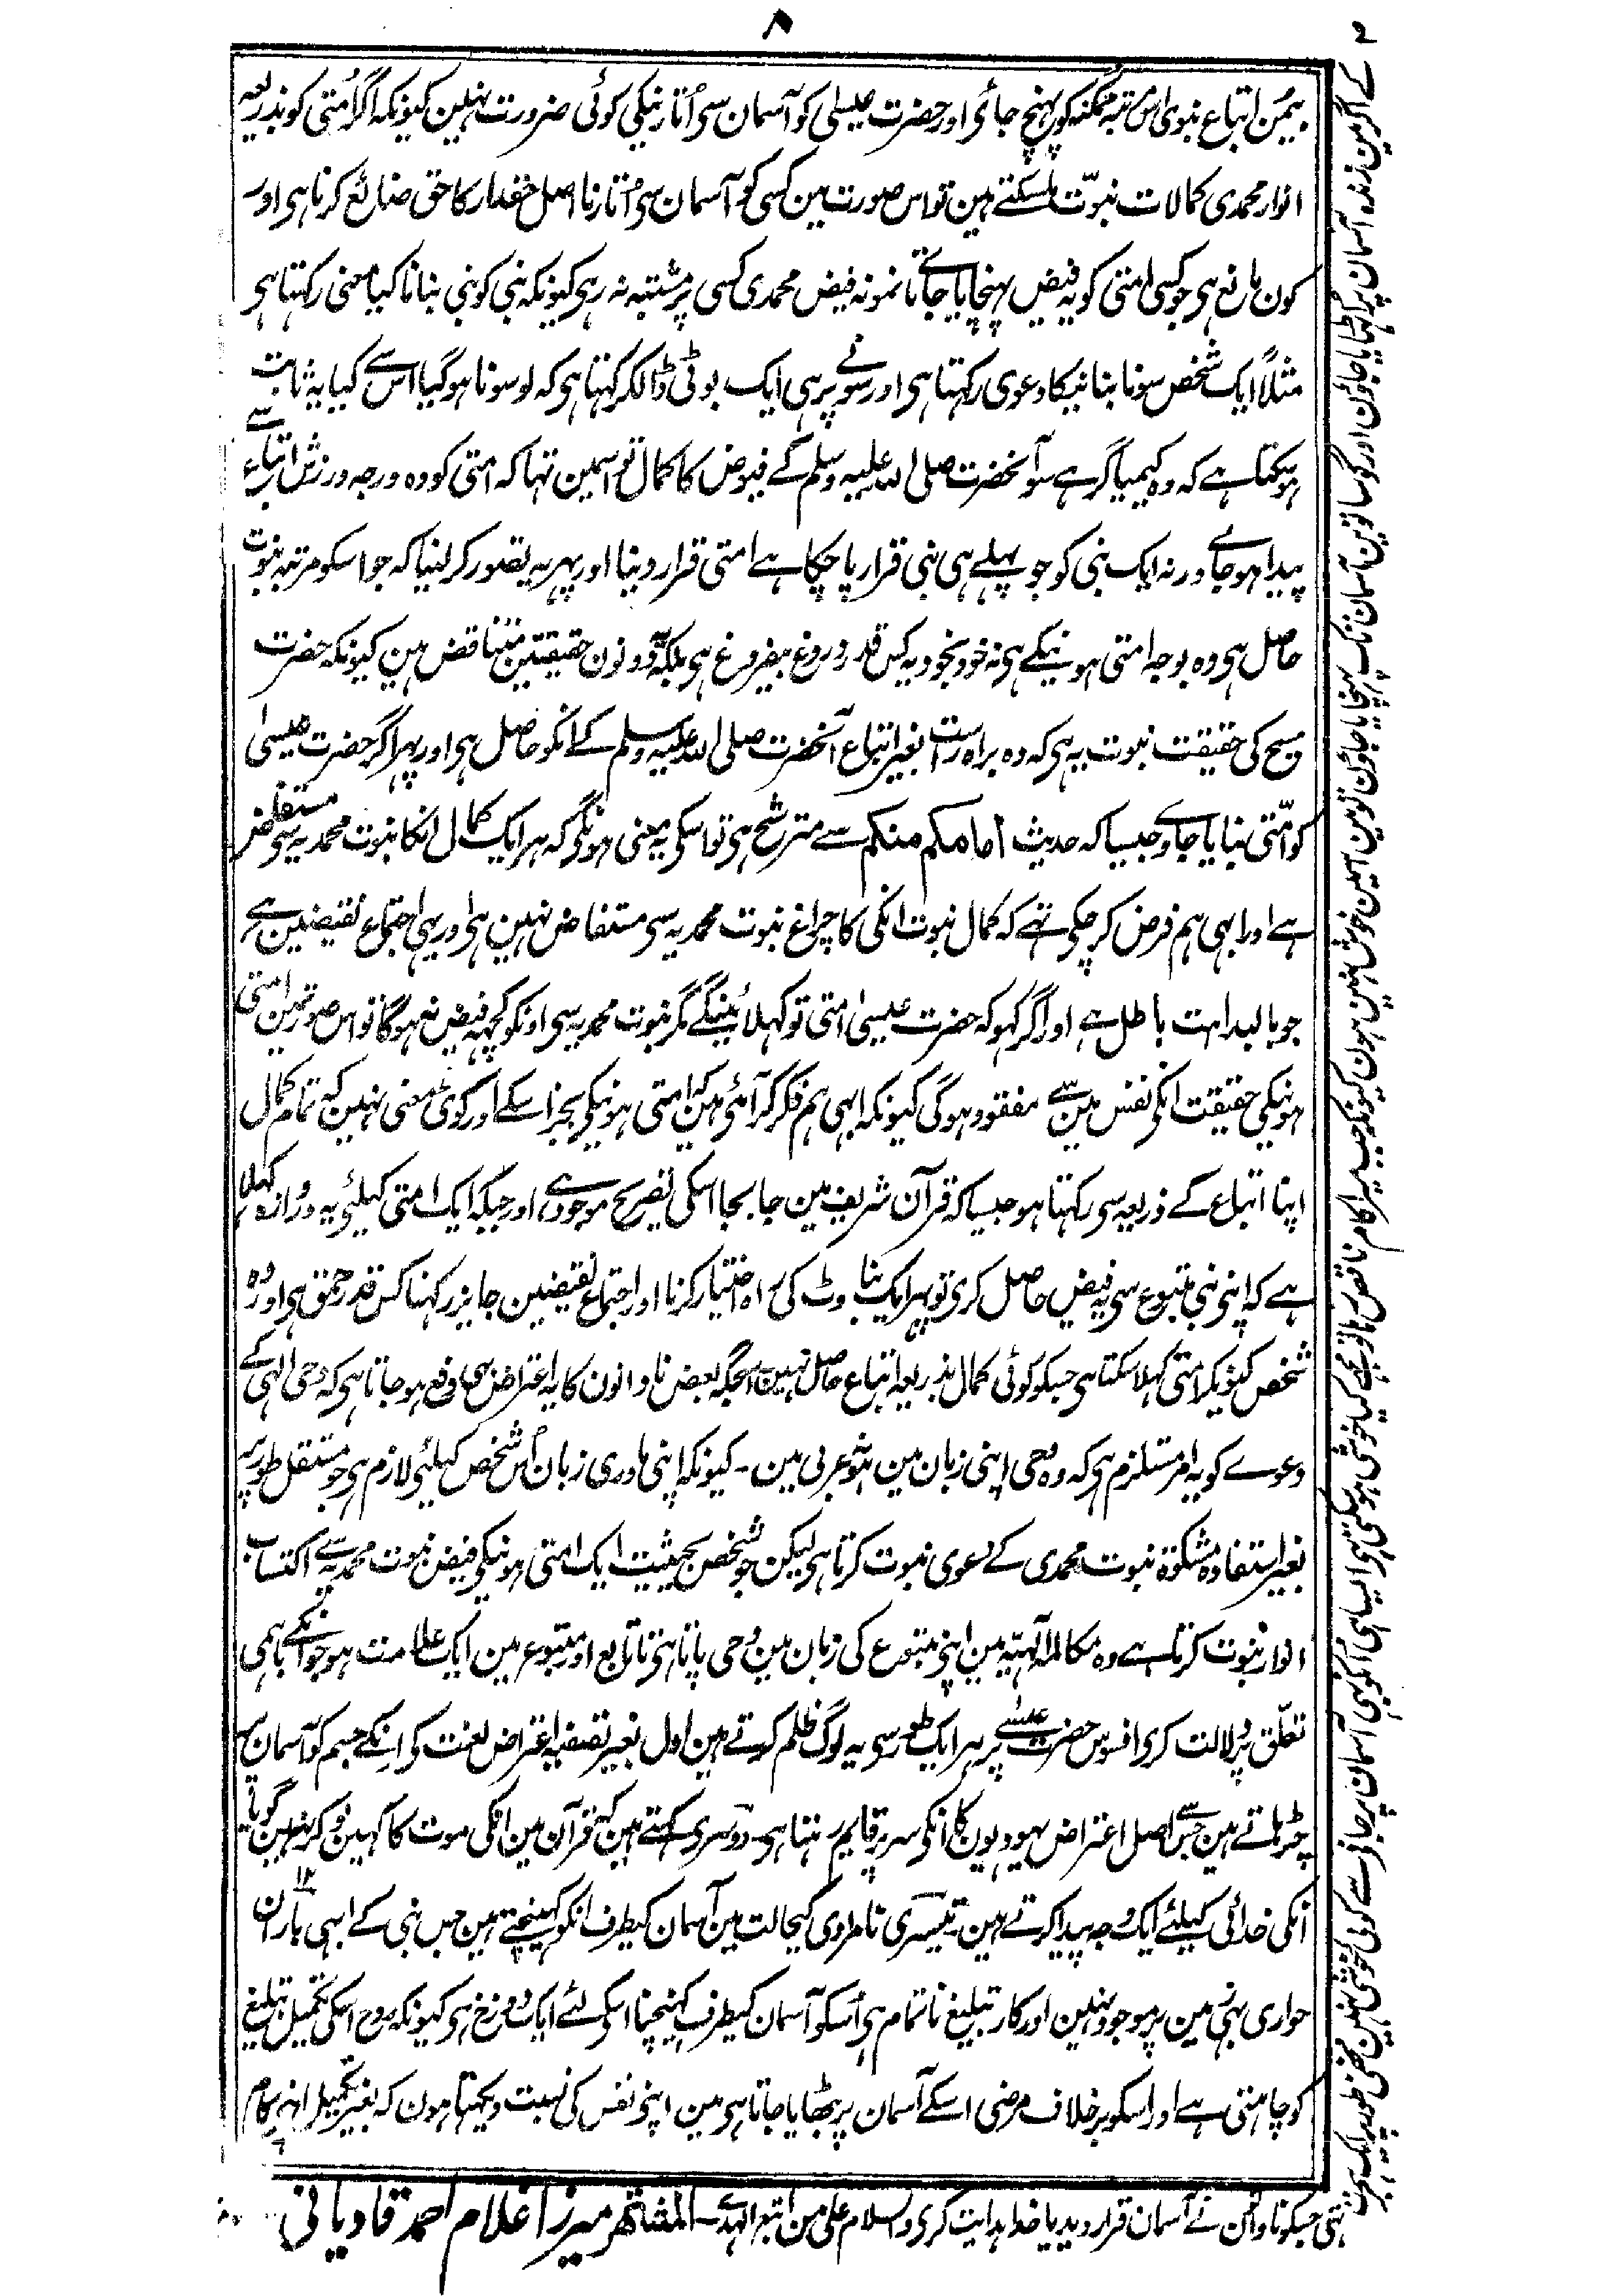 ۸
بیمن اتباع نبوی اس مرتبہ ممکنہ کو پہنچ جائی اور حضرت عیسیٰ کو آسمان سی اُتارنیکی کوئی ضرورت نہین کیونکہ اگر اُمتی کو بذریعہ
انوار محمدی کمالات نبوّت مل سکتے ہین تو اس صورت مین کسی کو آسمان سی اُتارنا اصل حقدار کا حق ضائع کرنا ہی اور
کون مانع ہی جو کسی امتی کو یہ فیض پہنچایا جائے تا نمونہ فیض محمدی کسی پر مشتبہ نہ رہی کیونکہ نبی کو نبی بنانا کیا معنی رکہتا ہی
مثلاً ایک شخص سونا بنانیکا دعوی رکہتا ہی اور سونے پر ہی ایک بوٹی ڈالکر کہتا ہی کہ لو سونا ہوگیا اس سے کیا یہ ثابت
ہوسکتا ہے کہ وہ کیمیاگر ہے سو آنحضرت صلی اللہ علیہ وسلم کے فیوض کا کمال تو اسمین تہا کہ امتی کو وہ درجہ ورزش اتباع سے
پیدا ہو جاے ورنہ ایک نبی کو جو پہلے ہی نبی قرار پا چکا ہے امتی قرار دینا اور پہر یہ تصور کر لینا کہ جو اسکو مرتبہ نبوت
حاصل ہی وہ بوجہ امتی ہونیکے ہی نہ خود بخود یہ کس قدر دروغ بیفروغ ہی بلکہ یہ دونون حقیقتین متناقض ہین کیونکہ حضرت
مسیح کی حقیقت نبوت یہ ہی کہ وہ براہ راست بغیر اتباع آنحضرت صلی اللہ علیہ وسلم کے انکو حاصل ہی اور پہر اگر حضرت عیسیٰ
کو اُمّتی بنایا جاے جیسا کہ حدیث امامکم منکم سے مترشح ہی تو اسکی یہ معنی ہونگی کہ ہر ایک کمال انکا نبوت محمدیہ سی مستفاض
ہے اور ابہی ہم فرض کر چکی تہے کہ کمال نبوت انکی کا چراغ نبوت محمدیہ سی مستفاض نہین ہی اور یہی اجتماع نقیضین ہے
جو بالبداہت باطل ہے اور اگر کہو کہ حضرت عیسیٰ امتی تو کہلائینگے مگر نبوت محمدیہ سی اونکو کچہہ فیض نہ ہوگا تو اس صورتمین امتی
ہونیکی حقیقت انکی نفس مین سے مفقود ہوگی کیونکہ ابہی ہم ذکر کر آئی ہین کہ امتی ہونیکی بجز اسکے اور کوئی معنی نہین کہ تمام کمال
اپنا اتباع کے ذریعہ سی رکہتا ہو جیسا کہ قرآن شریف مین جا بجا اسکی تصریح موجود ہے اور جبکہ ایک امتی کیلئی یہ دروازہ کہلا
ہے کہ اپنی نبی متبوع سی یہ فیض حاصل کری تو پہر ایک بناوٹ کی راہ اختیار کرنا اور اجتماع نقیضین جایز رکہنا کس قدر حمق ہی اور وہ
شخص کیونکر امتی کہلا سکتا ہی جسکو کوئی کمال بذریعہ اتباع حاصل نہین اسجگہ بعض نادانون کا یہ اعتراض بہی دفع ہو جاتا ہی کہ وحی الٰہی کے
دعوے کو یہ امر مستلزم ہی کہ وہ وحی اپنی زبان مین ہو نہ عربی مین۔ کیونکہ اپنی مادری زبان اُس شخص کیلئی لازم ہی جو مستقل طور پر
بغیر استفادہ مشکوٰۃ نبوت محمدی کے دعوی نبوت کرتا ہی لیکن جو شخص بحیثیت ایک امتی ہونیکی فیض نبوت محمدیہ سے اکتساب
انوار نبوت کرتا ہے وہ مکالمہ الٰہیّہ مین اپنی متبوع کی زبان مین وحی پاتا ہی تا تابع اور متبوع مین ایک علامت ہو جو انکے باہمی
تعلّق پر دلالت کری افسوس حضرت عیسیٰ پر ہر ایک طور سی یہ لوگ ظلم کرتے ہین اول بغیر تصفیہ اعتراض لعنت کی انکے جسم کو آسمان پر
چڑہاتے ہین جس سے اصل اعتراض یہودیون کا انکی سر پر قایم رہتا ہی۔ دوسری کہتے ہین کہ قرآن مین انکی موت کا کہین ذکر نہین گویا
انکی خدائی کیلئے ایک وجہ پیدا کرتے ہین۔ تیسری نامرادی کیحالت مین آسمان کیطرف انکو کہینچتے ہین جس نبی کے ابہی باران ۱۲
حواری بہی زمین پر موجود نہین اور کار تبلیغ ناتمام ہی اُسکو آسمان کیطرف کہینچنا اسکی لئے ایک دوزخ ہی کیونکہ روح اسکی تکمیل تبلیغ
کو چاہتی ہے اور اسکو برخلاف مرضی اسکے آسمان پر بٹہایا جاتا ہی مین اپنی نفس کی نسبت دیکہتا ہون کہ بغیر تکمیل اپنی کام
کے اگر مین زندہ آسمان پر اُٹہایا جاؤن اور گو ساتوین آسمان تک پہنچایا جاؤن تو مین اسمین خوش نہین ہون کیونکہ جب میرا کام ناقص رہا تو مجہے کیا خوشی ہو سکتی ہی ایسا ہی انکو بہی آسمان پر جانے سے کوئی خوشی نہین مخفی طور پر ایک ہجرت
تہی جسکو نادانون نے آسمان قرار دیدیا خدا ہدایت کری والسلام علیٰ من اتبع الہدےٰ۔ المشتہر میرزا غلام احمد قادیانی